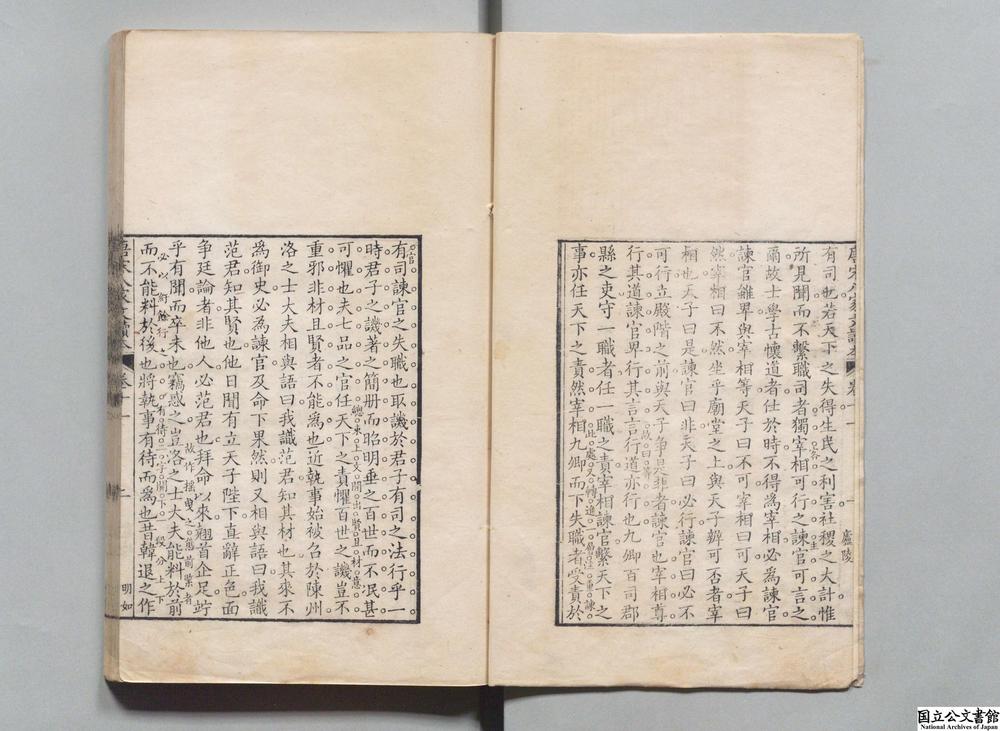 有司也若天下之失得生民之利害社稷之大計惟
所見聞而不繫職司者獨宰相可行之諫官可言之
爾故士學古懷道者仕於時不得爲宰相必爲諫官
諫官雖卑與宰相等天子曰不可宰相曰可天子曰
然宰相曰不然坐乎廟堂之上與天子辯可否者宰
相也天子曰是諫官曰非天子曰必行諫官曰必不
可行立殿階之前與天子爭是非者諫官也宰相尊
行其道諫官卑行其言言行道亦行也九卿百司郡
縣之吏守一職者任一職之責宰相諫官繫天下之
事亦任天下之責然宰相九卿而下失職者受責於
廬陵
有司諫官之失職也取譏於君子有司之法行乎一
時君子之譏著之簡册而昭明垂之百世而不泯甚
可懼也夫七品之官任天下之責懼百世之譏豈不
總束上文開出賢且材意
重邪非材且賢者不能爲也近執事始被召於陳州
洛之士大夫相與語曰我識范君知其材也其來不
爲御史必爲諫官及命下果然則又相與語曰我識
范君知其賢也他日聞有立天子陛下直辭正色面
爭廷論者非他人必范君也拜命以來翹首企足竚
故作搖曳之態前緊者
必以紆餘行之
乎有聞而卒未也竊惑之豈洛之士大夫能料於前
有待二字開下一段分上下
而不能料於後也將執事有待而爲也昔韓退之作
唐宋八家文讀本
卷十一
明如
国立公文書館
National Archives of Japan